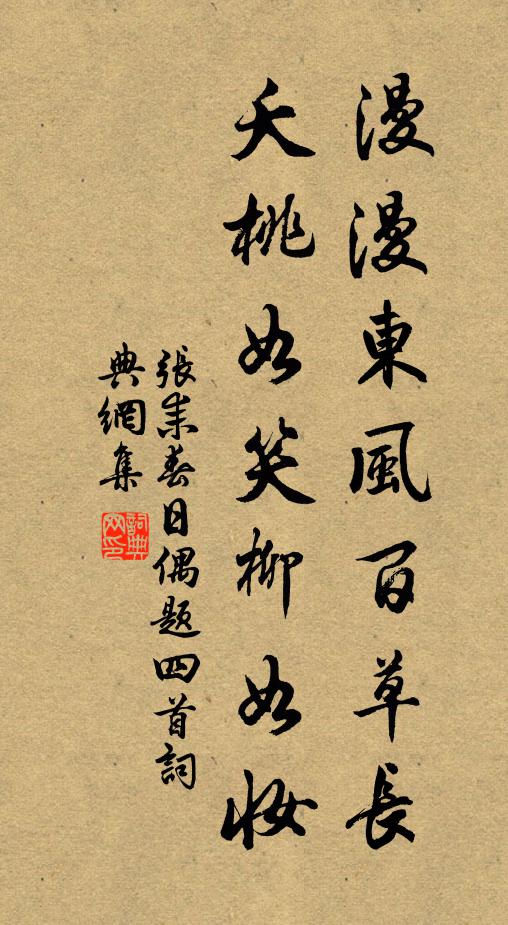 漫漫東風百草長
夭桃如笑柳如妝
張耒春日偶題四首詞
典網集
詞典
网印